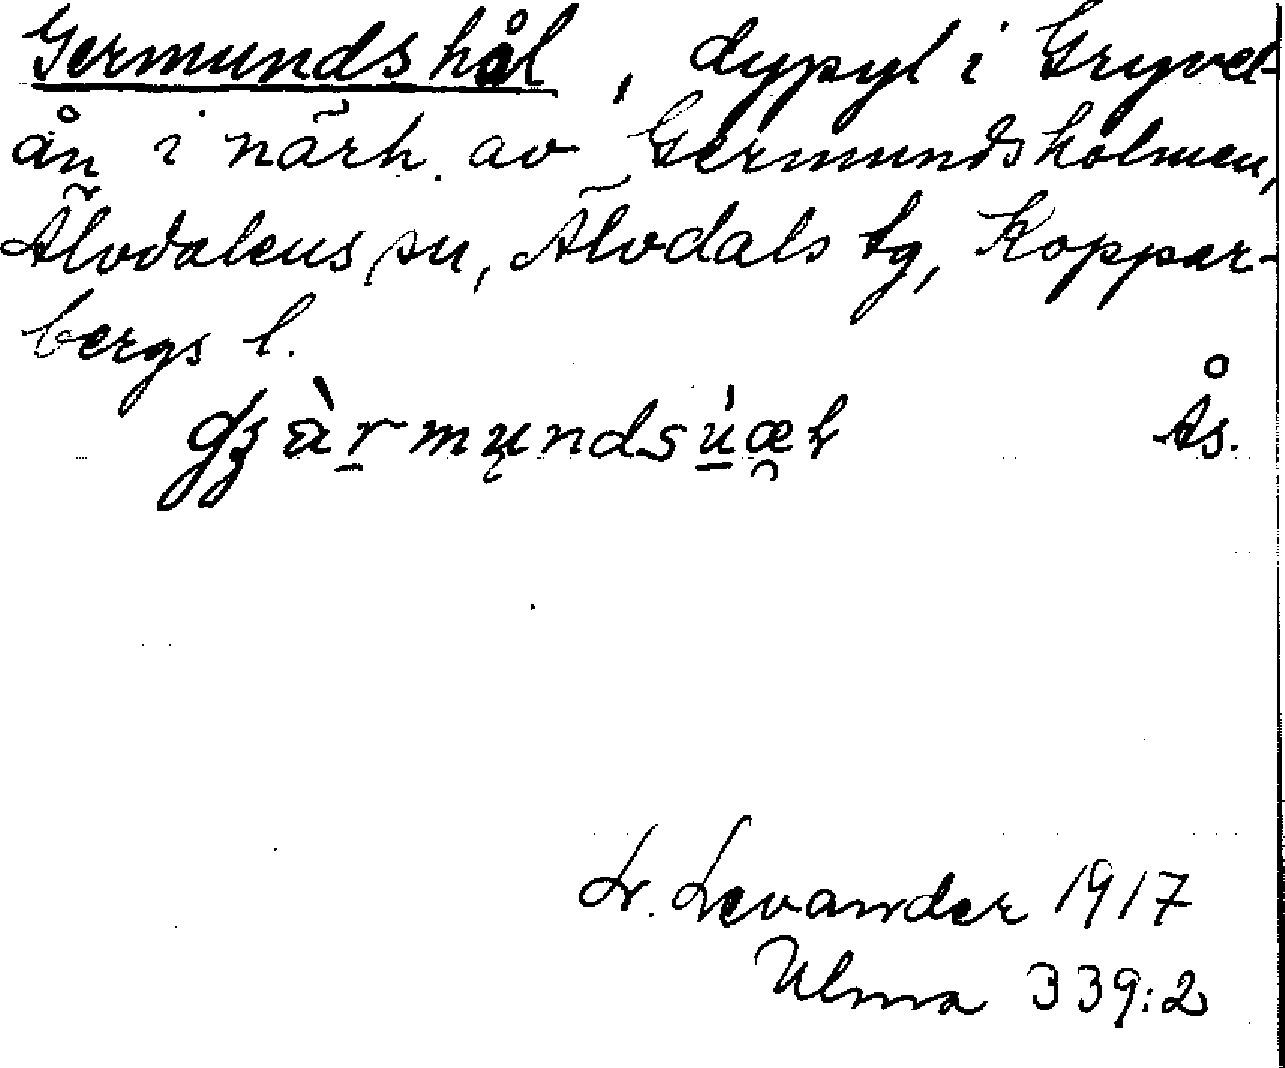 Germundshål, dypyl i Gryvel-
ån i närh. av Germundsholmen,
Älvdalens sn, Älvdals tg, Koppar-
bergs l.
Ås.
L. Levander 1917
Ulma 339:2